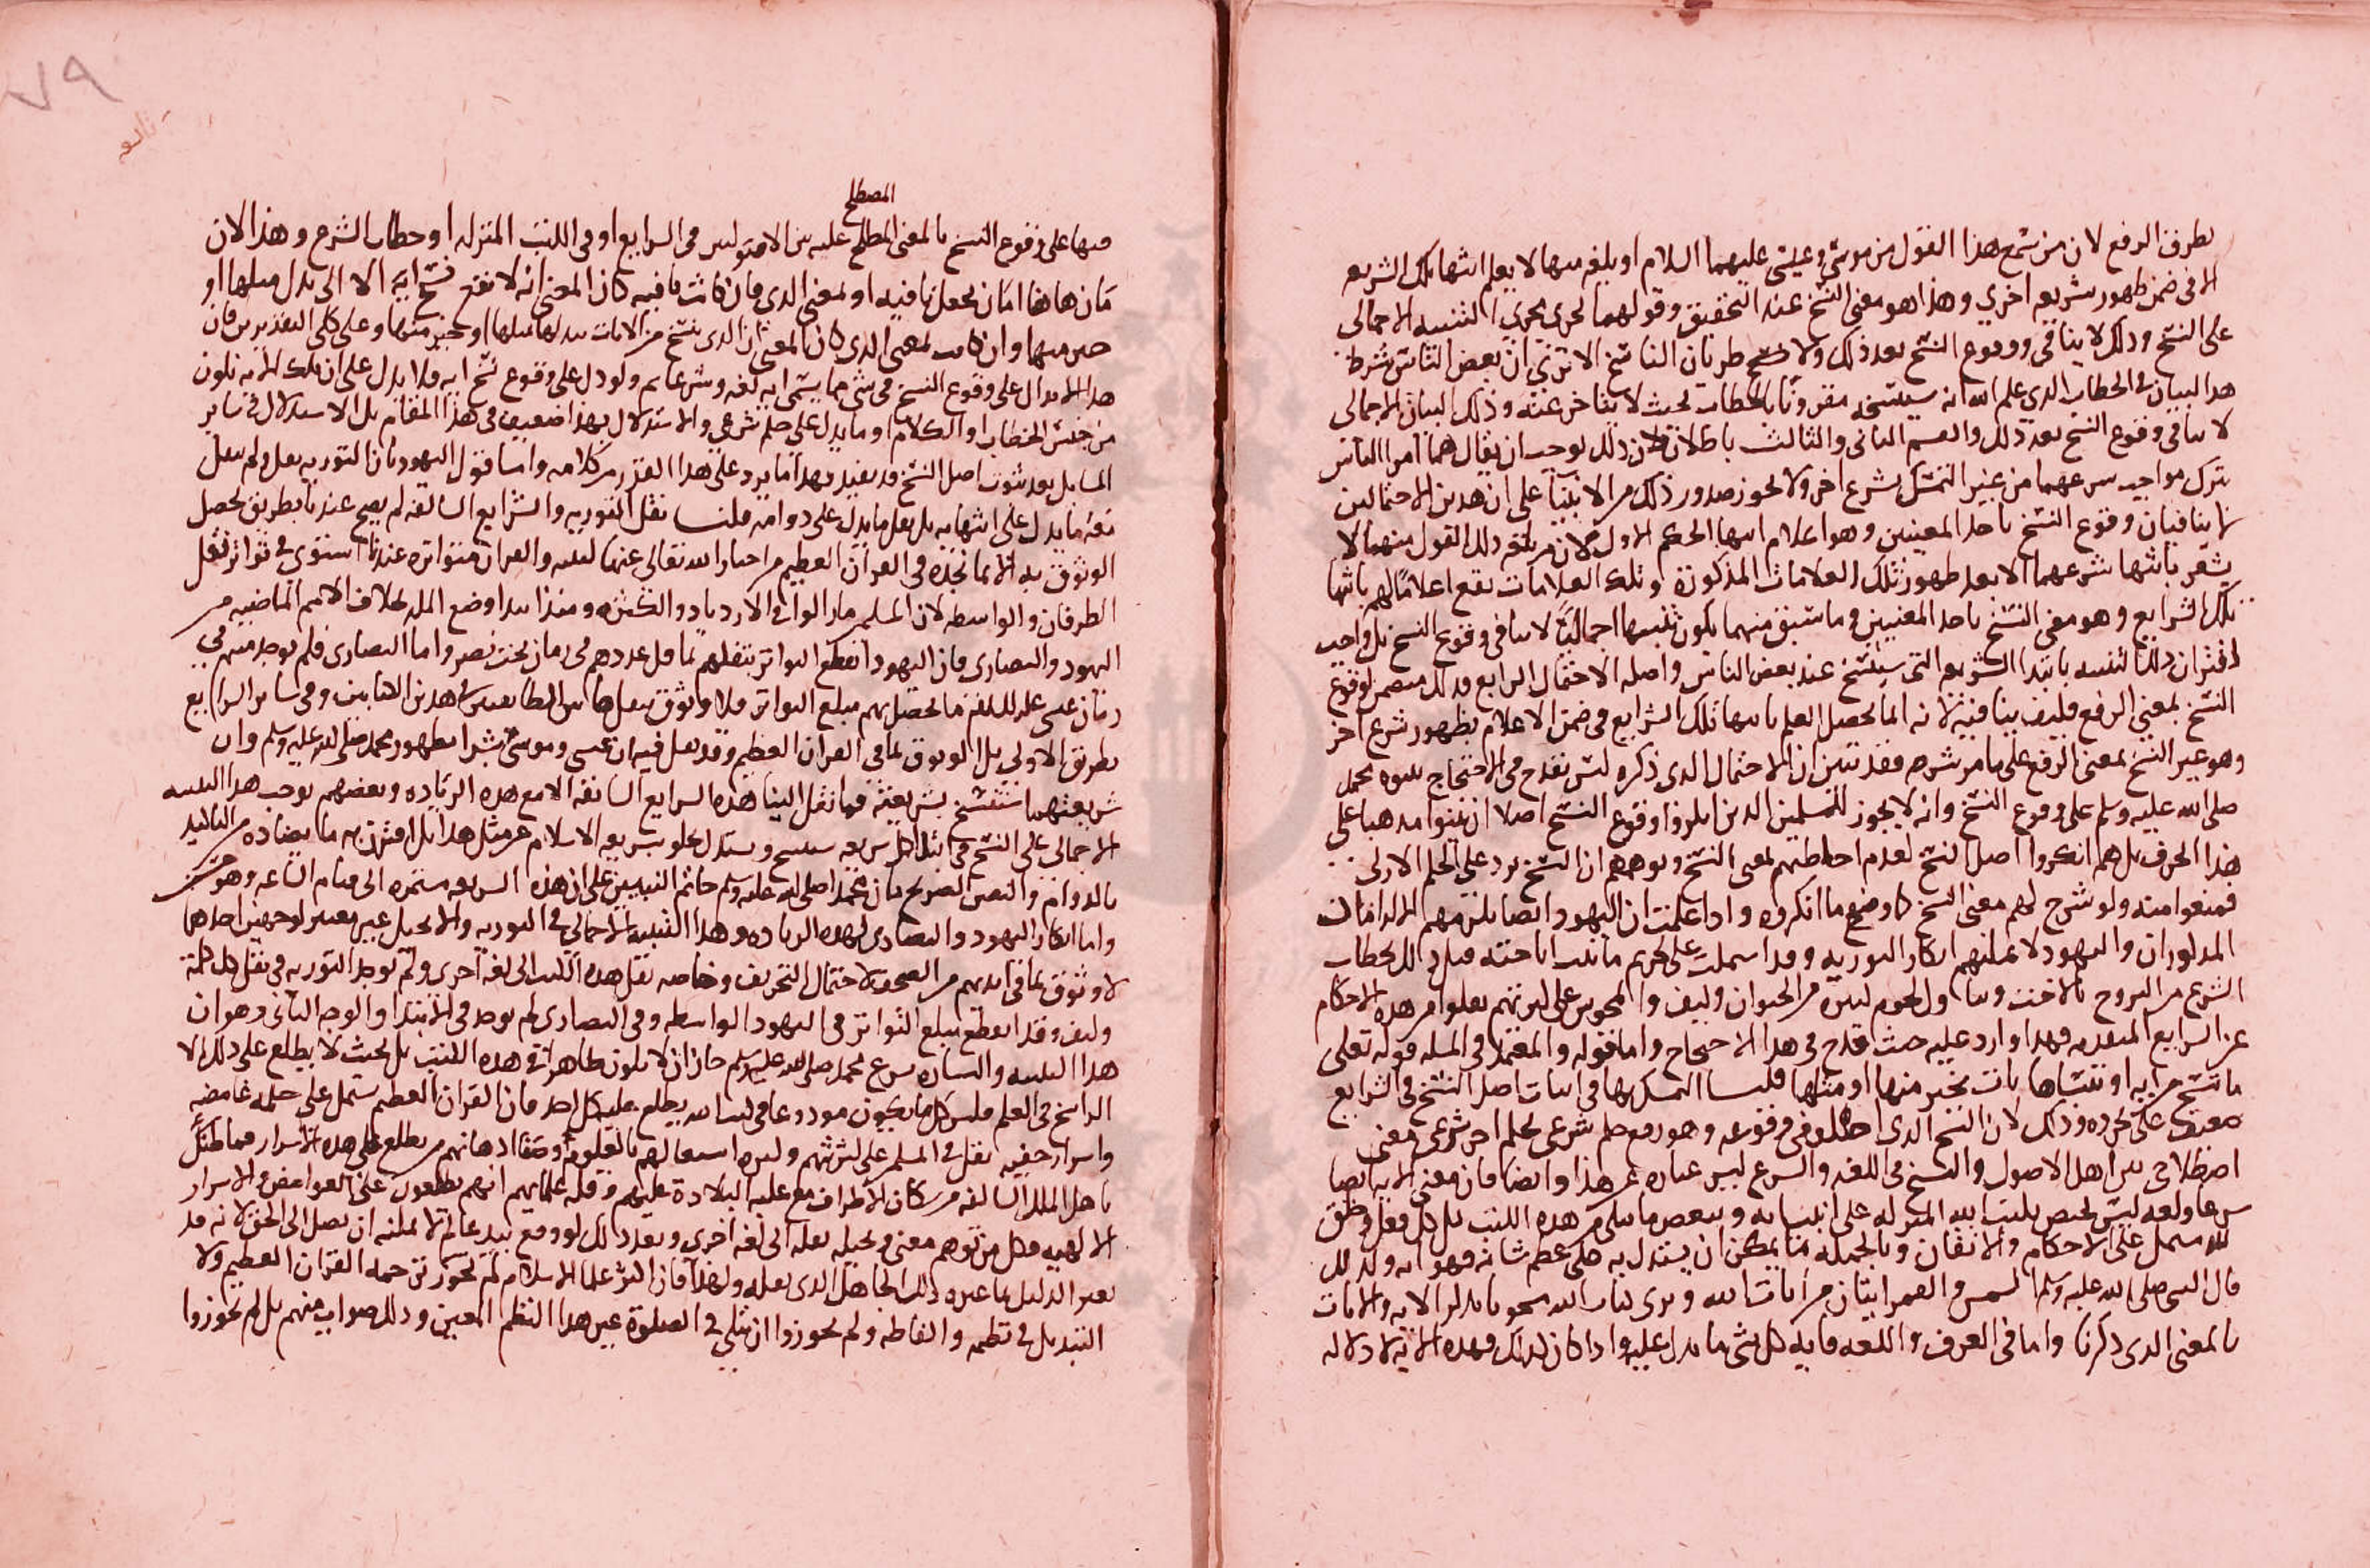 بطرف الرفع لان من سمع هذا القول من موسى وعيسى عليهما السلام او بلغه منها لا يعلم انتها تلك الشريعه
الا في ضمن ظهور شريعه اخرى وهذا هو معنى النسخ عند التحقيق وقولهما يجرى مجرى التنبيه الاجمالى
على النسخ وذلك لا ينافى ووقوع النسخ بعد ذلك ولا طريان الناسخ الا ترى ان بعض الناس شرط
هذا البيان في الخطاب الذي علم الله انه سينسخه مقرونا بالخطاب بحيث لا يتاخر عنه وذلك البيان الاجمالى
لا ينافى وقوع النسخ بعد ذلك والقسم الثانى والثالث باطلان لان ذلك يوجب ان يقال هما امرا الناس
بترك مواجب شرعهما من غير التمسك بشرع اخر ولا يجوز صدور ذلك من الانبيا على ان هذين الاحتمالين
لا ينافيان وقوع النسخ باحد المعنيين وهو اعلام انتها الحكم الاول لان من بلغه ذلك القول منهما لا
يشعر بانتها شرعهما الا بعد ظهور تلك العلامات المذكورة وتلك العلامات تقع اعلاما لهم بانتها
تلك الشرايع وهو معنى النسخ باحد المعنيين وما سبق منهما يكون تنبيها اجماليا لا ينافى وقوع النسخ بل واجب
اقتران ذلك التنبيه بابتدا الشريعه التى ستنسخ عند بعض الناس واصله الاحتمال الرابع وذلك متضمن لوقوع
النسخ بمعنى الرفع فكيف ينافيه لانه انما يحصل العلم بانتها تلك الشرايع في ضمن الاعلام بظهور شرع اخر
وهو عين النسخ بمعنى الرفع على ما مر شرحه فقد تبين ان الاحتمال الذى ذكره ليس يقدح في الاحتجاج بنبوه محمد
صلى الله عليه وسلم على وقوع النسخ وانه لا يجوز للمسلمين الذين انكروا وقوع النسخ اصلا ان يبنوا مذهبا على
هذا الحرف بل هم انكروا اصل النسخ لعدم احاطتهم بمعنى النسخ وتوهمهم ان النسخ يرد على الحكم الازلى
فمنعوا منه ولو شرح لهم معنى النسخ كما وضح ما انكروه واذا علمت ان اليهود ايضا يلزمهم الالزامان
المذكوران واليهود لا يمكنهم انكار التوريه وقد اشتملت على تحريم ما ثبت اباحته قبل ذلك بخطاب
الشرع من التزوج بالاخت وتناول لحوم كثيرة من الحيوان وكيف والمجوس على كثرتهم نقلوا من هذه الاحكام
عن الشرايع المتقدمه فهذا وارد عليه حيث قدح في هذا الاحتجاج واما قوله والمعتمد في المسله قوله تعلى
ما ننسخ من ايه او ننساها نات بخير منها او مثلها فلنا التمسك بها في اثبات اصل النسخ في الشرايع
ضعيف على تجرده وذلك لان النسخ الذى اختلف في وقوعه وهو رفع حكم شرعى بحكم اخر شرعى معنى
اصطلاحى بين اهل الاصول والنسخ في اللغه والشرع ليس عباره عن هذا وايضا فان معنى الايه ايضا
شرعا ولغه ليس يختص بكتب الله المنزله على انبيايه وببعض ما يتلى من هذه الكتب بل كل فعل ونطق
لله مشتمل على الاحكام والاتقان وبالجمله مما يمكن ان يستدل به على عظم شانه فهو ايه ولذلك
قال النبى صلى الله عليه وسلم الشمس والقمر ايتان من ايات الله وترى كتاب الله مشحونا بذكر الايه والايات
بالمعنى الذى ذكرنا واما في العرف واللغه فايه كل شى ما يدل عليه واذا كان كذلك فهذه الايه لا دلاله
المصطلح
فيها على وقوع النسخ بالمعنى المصطلح عليه بين الاصوليين في الشرايع او في الكتب المنزله او خطاب الشرع وهذا لان
مان هاهنا اما ان يجعل نافيه او لمعنى الذى فان كانت نافيه كان المعنى انه لا يقع نسخ ايه الا الى بدل مثلها او
خير منها وان كانت لمعنى الذى كان المعنى ان الذى ينسخ من الايات يبدلها مثلها او خير منها وعلى كلى التقديرين فان
هذا الابدال على وقوع النسخ في شى مما يسمى ايه لغه وشرعا نعم ولو دل على وقوع نسخ ايه فلا يدل على ان تلك الايه تكون
من جنس الخطاب او الكلام او ما يدل على حكم شرعى والاستدلال بهذا ضعيف في هذا المقام بل الاستدلال في ساير
المسايل بعد ثبوت اصل النسخ قد يفيد فهذا ما يرد على هذا القدر من كلامه واما قول اليهود بان التوريه نقل ولم ينقل
نقه ما يدل على انتهايه بل نقل ما يدل على دوامه فلنا نقل التوريه والشرايع السالفه لم يصح عندنا بطريق يحصل
الوثوق به الا بما نجده في القران العظيم من اخبار الله تعالى عنها لنبيه والقران متواتره عندنا استوى في تواتر نقل
الطرفان والواسطه لان المسلمين ما زالوا في الازدياد والكثره ومنذ ابتدا وضع المله بخلاف الامم الماضيه من
اليهود والنصارى فان اليهود انقطع التواتر بنقلهم لما قل عددهم في زمان بخت نصر واما النصارى فلم يوجد منهم في
زمان عيسى عليه السلام ما يحصل بهم مبلغ التواتر فلا وثوق بنقل هاتين الطايفتين في هذين الكتابين وفي ساير الشرايع
بطريق الاولى بل الوثوق بما في القران العظيم وقد نقل فيه ان عيسى وموسى بشرا بظهور محمد صلى الله عليه وسلم وان
شريعتهما ستنسخ بشريعته فما نقل الينا هذه الشرايع السابقه الا مع هذه الزياده وبعضهم يوجب هذا التنبيه
الاجمالى على النسخ في ابتدا كل شريعه ستنسخ ويستدل بخلو شريعه الاسلام عن مثل هذا بل اقترن به ما يضاده من التاكيد
بالدوام والنص الصريح بان محمدا صلى الله عليه وسلم خاتم النبيين على ان هذه الشريعه مستمره الى قيام الساعه وهو حسن
واما انكار اليهود والنصارى لهذه الزياده وهذا التنبيه الاجمالى في التوريه والانجيل غير معتبر لوجهين احدهما
لا وثوق بما في ايديهم من الصحف لاحتمال التحريف وخاصه نقل هذه الكتب الى لغه اخرى ولم توجد التوريه في نقل كل كلمة
وكيف وقد انقطع مبلغ التواتر في اليهود الواسطه وفي النصارى لم يوجد في الابتدا والوجه الثانى وهو ان
هذا التنبيه والبشاره بشرع محمد صلى الله عليه وسلم جاز ان لا تكون ظاهرة في هذه الكتب بل بحيث لا يطلع على ذلك الا
الراسخ في العلم فليس كل ما يكون مودوعا في كتاب الله يطلع عليه كل احد فان القران العظيم يشتمل على جمله غامضه
واسرار خفيه نقل في المسلمين على كثرتهم وكثره اشتغالهم بالعلوم وصفا اذهانهم من يطلع على هذه الاسرار فما ظنك
باهل الملل السالفه من سكان الاطراف مع غلبه البلادة عليهم وقله علمايهم انهم يطلعون على الغوامض والاسرار
الالهيه فكل من توهم معنى وتخيله نقله الى لغه اخرى وبعد ذلك لو وقع بيد عالم لا يمكنه ان يصل الى الحق لانه قد
تغير الدليل بما غيره ذلك الجاهل الذى نقله ولهذا فان اكثر علما الاسلام لم يجوز ترجمه القران العظيم ولا
التبديل في نظمه والفاظه ولم يجوزوا ان يتلى في الصلوة غير هذا النظم المعين وذلك صواب منهم بل لم يجوزوا